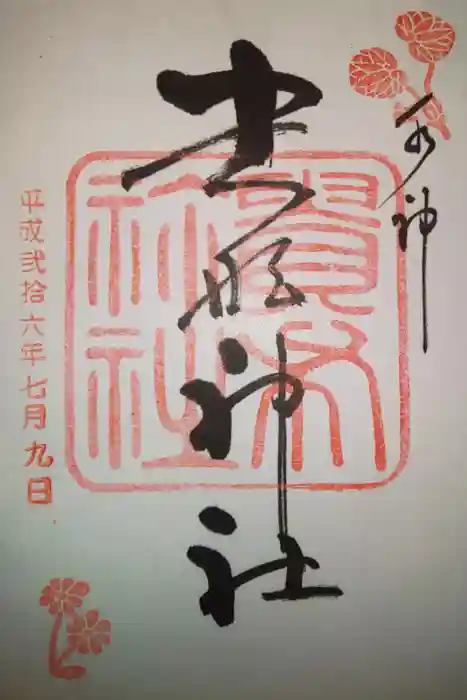 水神
貴船神社
貴布
祢社
平成弐拾六年七月九日